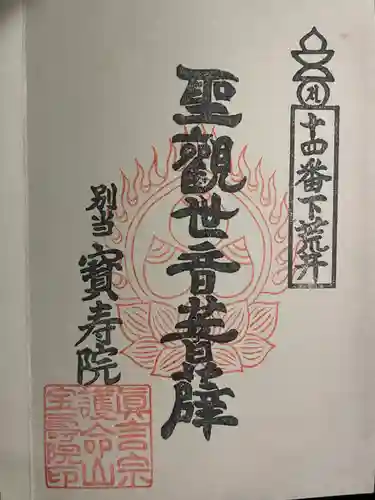 札
十四番下荒井
聖觀世音菩薩
別当 寶寿院
眞言宗
護命山
宝寿院印